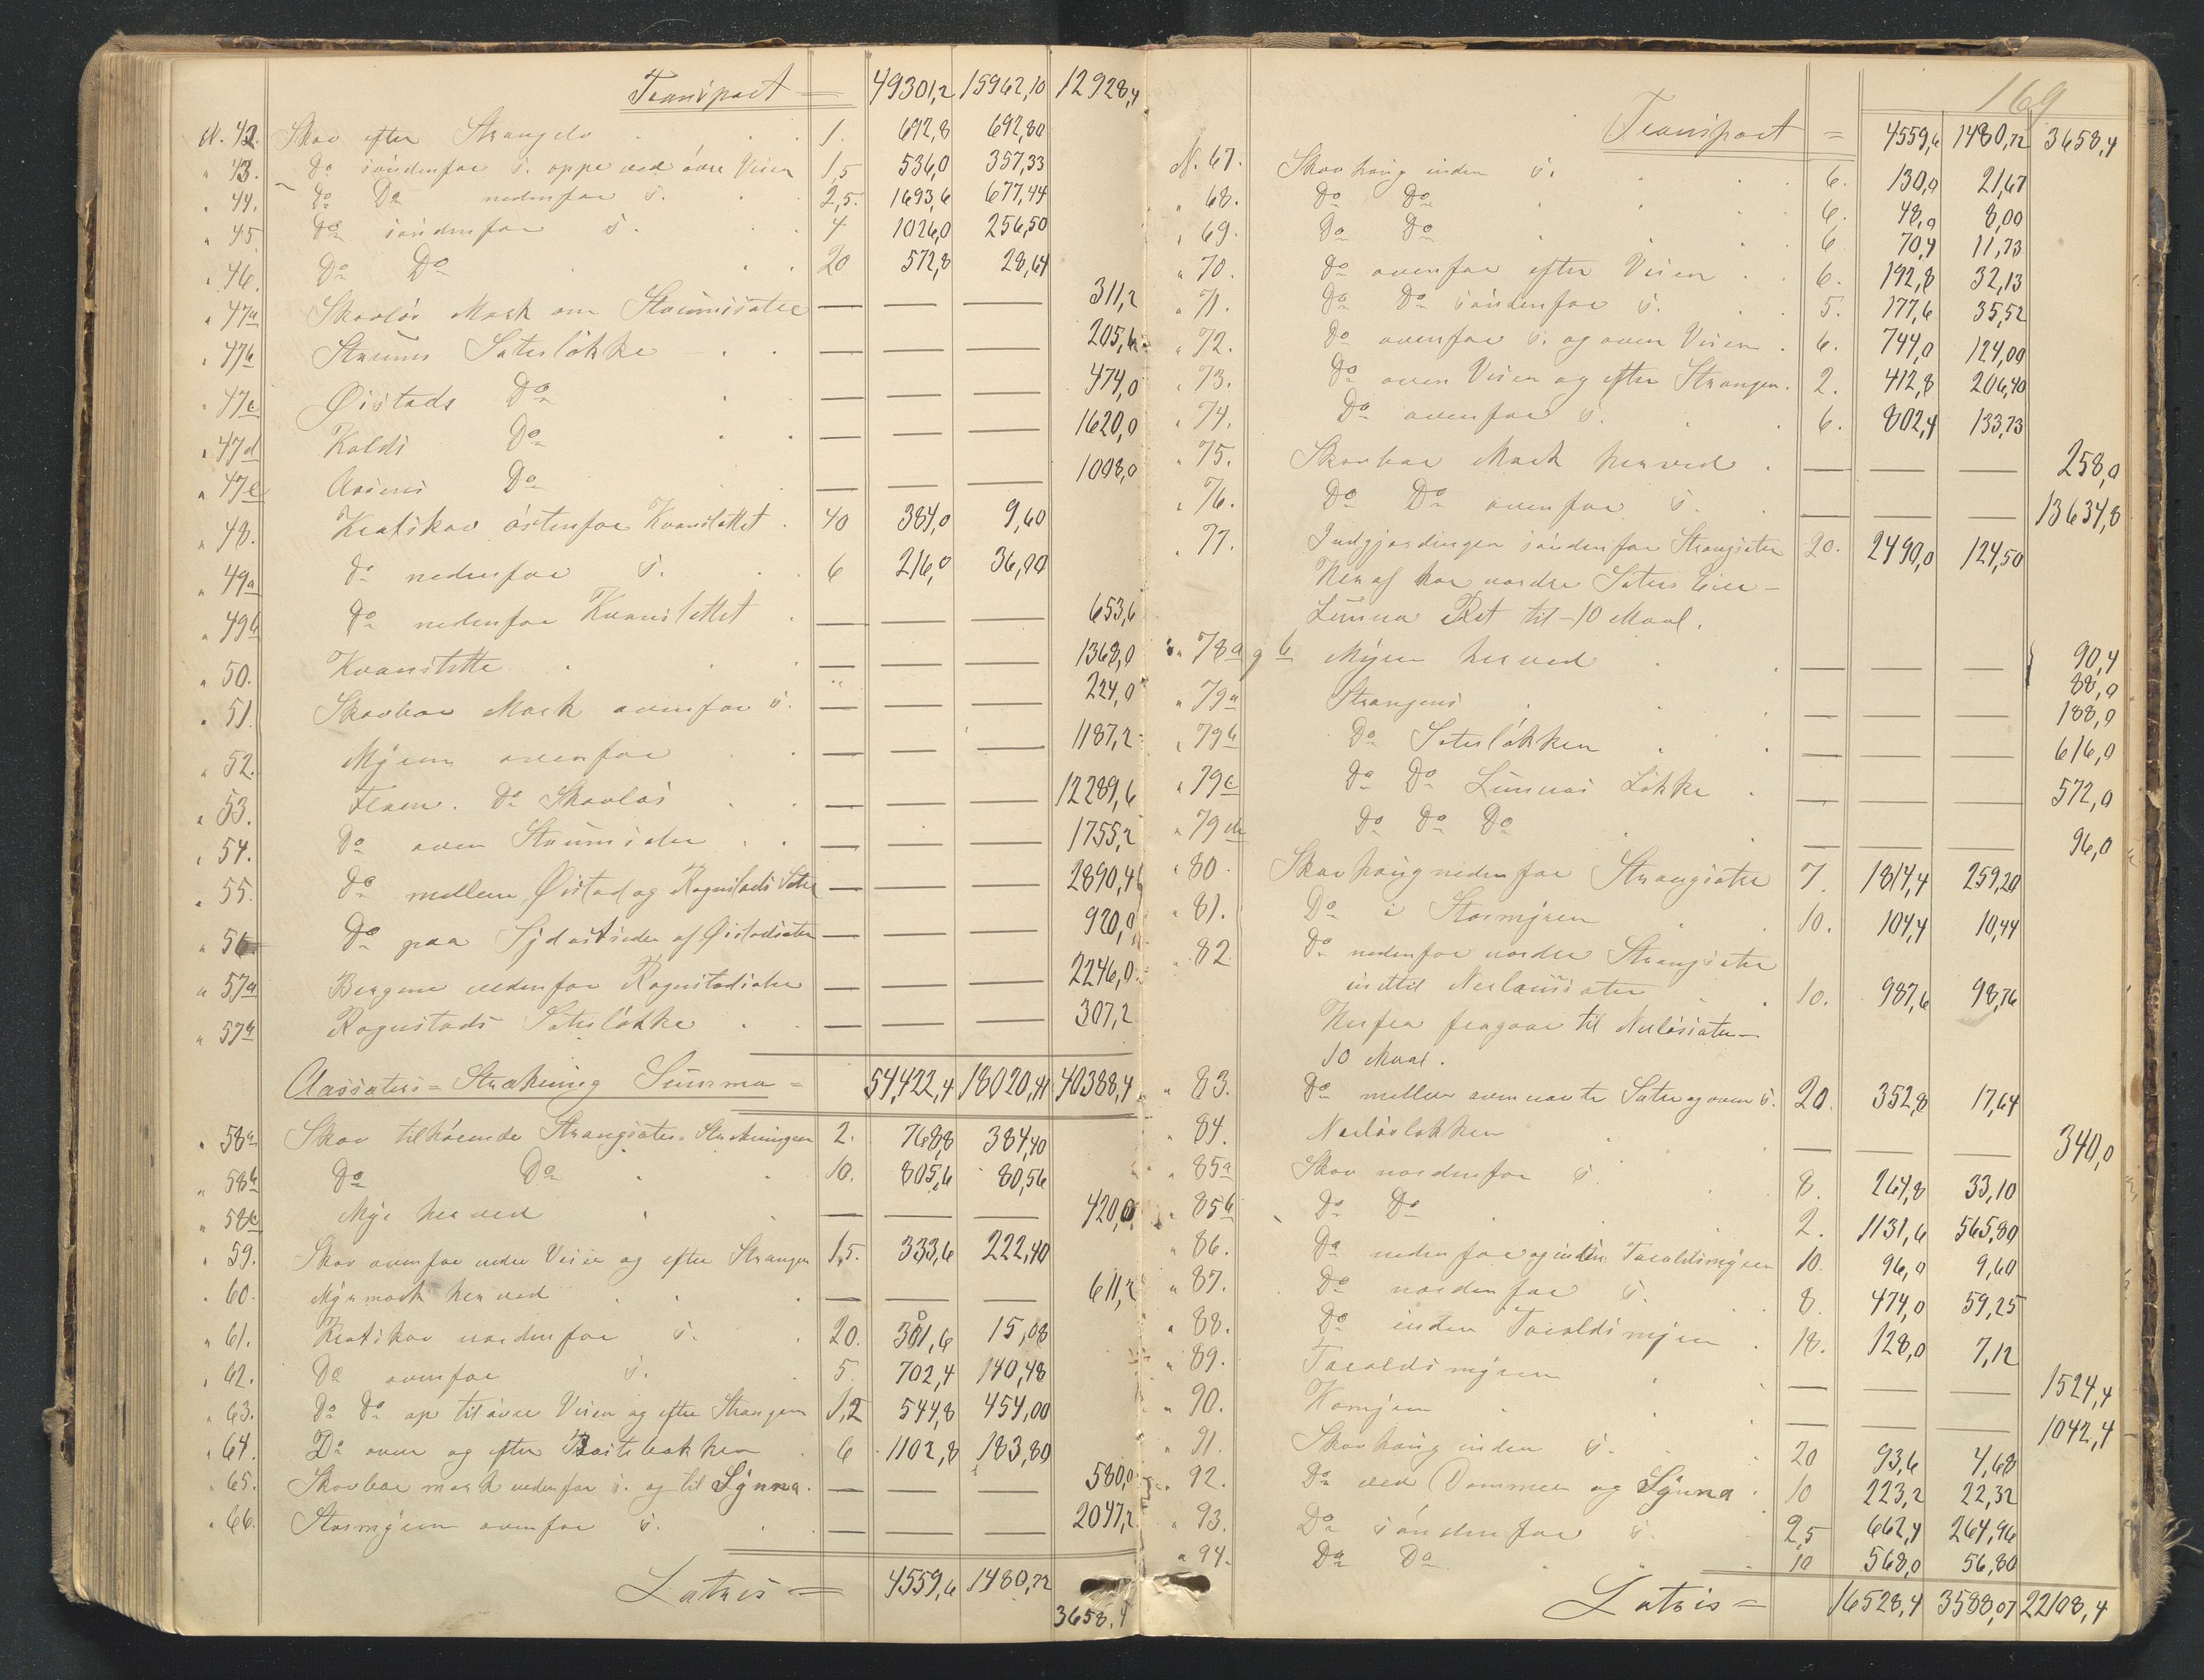 Transport = 49301,2 15962,10 12928,4
N. 42. Skov efter Strangelv 1. 692,8 692,80
" 43. Do söndenfor s. oppe ved övre Veien 1,5 536,0 357,33
" 44. Do Do nedenfor s. 2,5. 1693,6 677,44
" 45 Do söndenfor s. 4 1026,0 256,50
" 46. Do Do 20 572,8 28,64
" 47a Skovlös Mark om Staumsæter — — — 311,2
" 47b Staums Sæterlökke — — — 205,6
" 47c Öistads Do — — — 474,0
" 47d Kolds Do — — — 1620,0
" 47e Do — — — 1008,0
" 48. Kratskov östenfor Kvanslettet 40 384,0 9,60
" 49a Do nedenfor s. 6 216,0 36,00
" 49b Do nedenfor Kvanslettet — — — 653,6
" 50. Kvanslette — — — 1368,0
" 51. Skovbar Mark ovenfor s. — — — 224,0
" 52. Myren ovenfor — — — 1187,2
" 53. Do Skovlös — — — 12289,6
" 54. Do oven Staumsæter — — — 1755,2
" 55. Do mellem Öistad og Rognstads Sæter — — — 2890,4
" 56 Do paa Sydostsiden af Öistadsæter — — — 920,0
" 57a Bergene nedenfor Rognstadsæter — — — 2246,0
" 57b Rognstads Sæterlökke — — — 307,2
Aassæters = Strækning Summa = 54,422,4 18020,41 40388,4
" 58a Skov tilhörende Strangsæter = Strækningen 2. 768,8 384,40
" 58b Do Do 10. 805,6 80,56
" 58c Myr herved — — — 420,0
" 59. Skov ovenfor nedre Veien og efter Strangen 1,5. 333,6 222,40
" 60. Myrmark herved — — — 611,2
" 61. Kratskov nordenfor s. 20. 301,6 15,08
" 62. Do ovenfor s. 5. 702,4 140,48
" 63. Do Do op til övre Veien og efter Strangen 1,2 544,8 454,00
" 64. Do oven og efter 6 1102,8 183,80
" 65. Skovbar mark nedenfor s. og til Synna. — — — 580,0
" 66. Stormyren ovenfor s. — — — 2047,2
Latris = 4559,6 1480,72
3658,4
169
Transport = 4559,6 1480,72 3658,4
N. 67. Skovhaug inden s. 6. 130,0 21,67
" 68. Do Do 6. 48,0 8,00
" 69. Do Do 6 70,4 11,73
" 70. Do ovenfor efter Veien 6. 192,8 32,13
" 71. Do Do söndenfor s. 5. 177,6 35,52
" 72. Do ovenfor s. og oven Veien 6. 744,0 124,00
" 73. Do oven Veien og efter Strangen. 2. 412,8 206,40
" 74. Do ovenfor s. 6. 802,4 133,73
" 75. Skovbar Mark herved — — — 258,0
" 76. Do Do ovenfor s. — — — 13634,8
" 77. Indgjerdingen söndenfor Strangsæter 20. 2490,0 124,50
Heraf har nordre Sæters Eier =
Lunna Ret til - 10 Maal.
" 78a g b Myren herved — — — 90,4
88,0
" 79a Strangens — — — 188,0
" 79b Do Sæterlökken — — — 616,0
" 79c Do Do Lunnas Lökke — — — 572,0
" 79d Do Do Do — — — 96,0
" 80. Skovhaug nedenfor Strangsæter 7. 1814,4 259,20
" 81. Do i Stormyren 10. 104,4 10,44
" 82. Do nedenfor nordre Strangsæter
indtil Nerlaussæter 10. 987,6 98,76
Herfra fragaar til Nerlössæter —
10 Maal.
" 83. Do mellem ovennævnte Sæter og oven s. 20. 352,8 17,64
" 84. Nerlöslökken — — — 340,0
" 85a Skov nordenfor s. 8. 264,8 33,10
" 85b Do Do 2. 1131,6 565,80
" 86. Do nedenfor og inden Toroldsmyren 10. 96,0 9,60
" 87. Do nordenfor s. 8. 474,0 59,25
" 88. Do inden Toroldsmyren 18. 128,0 7,12
" 89. Toroldsmyren — — — 1524,4
" 90. — — — 1042,4
" 91. Skovhaug inden s. 20 93,6 4,68
" 92. Do ved Dammen og Synna 10 223,2 22,32
" 93. Do söndenfor s. 2,5 662,4 264,96
" 94. Do Do 10 568,0 56,80
Latris = 16528,4 3588,07 22108,4